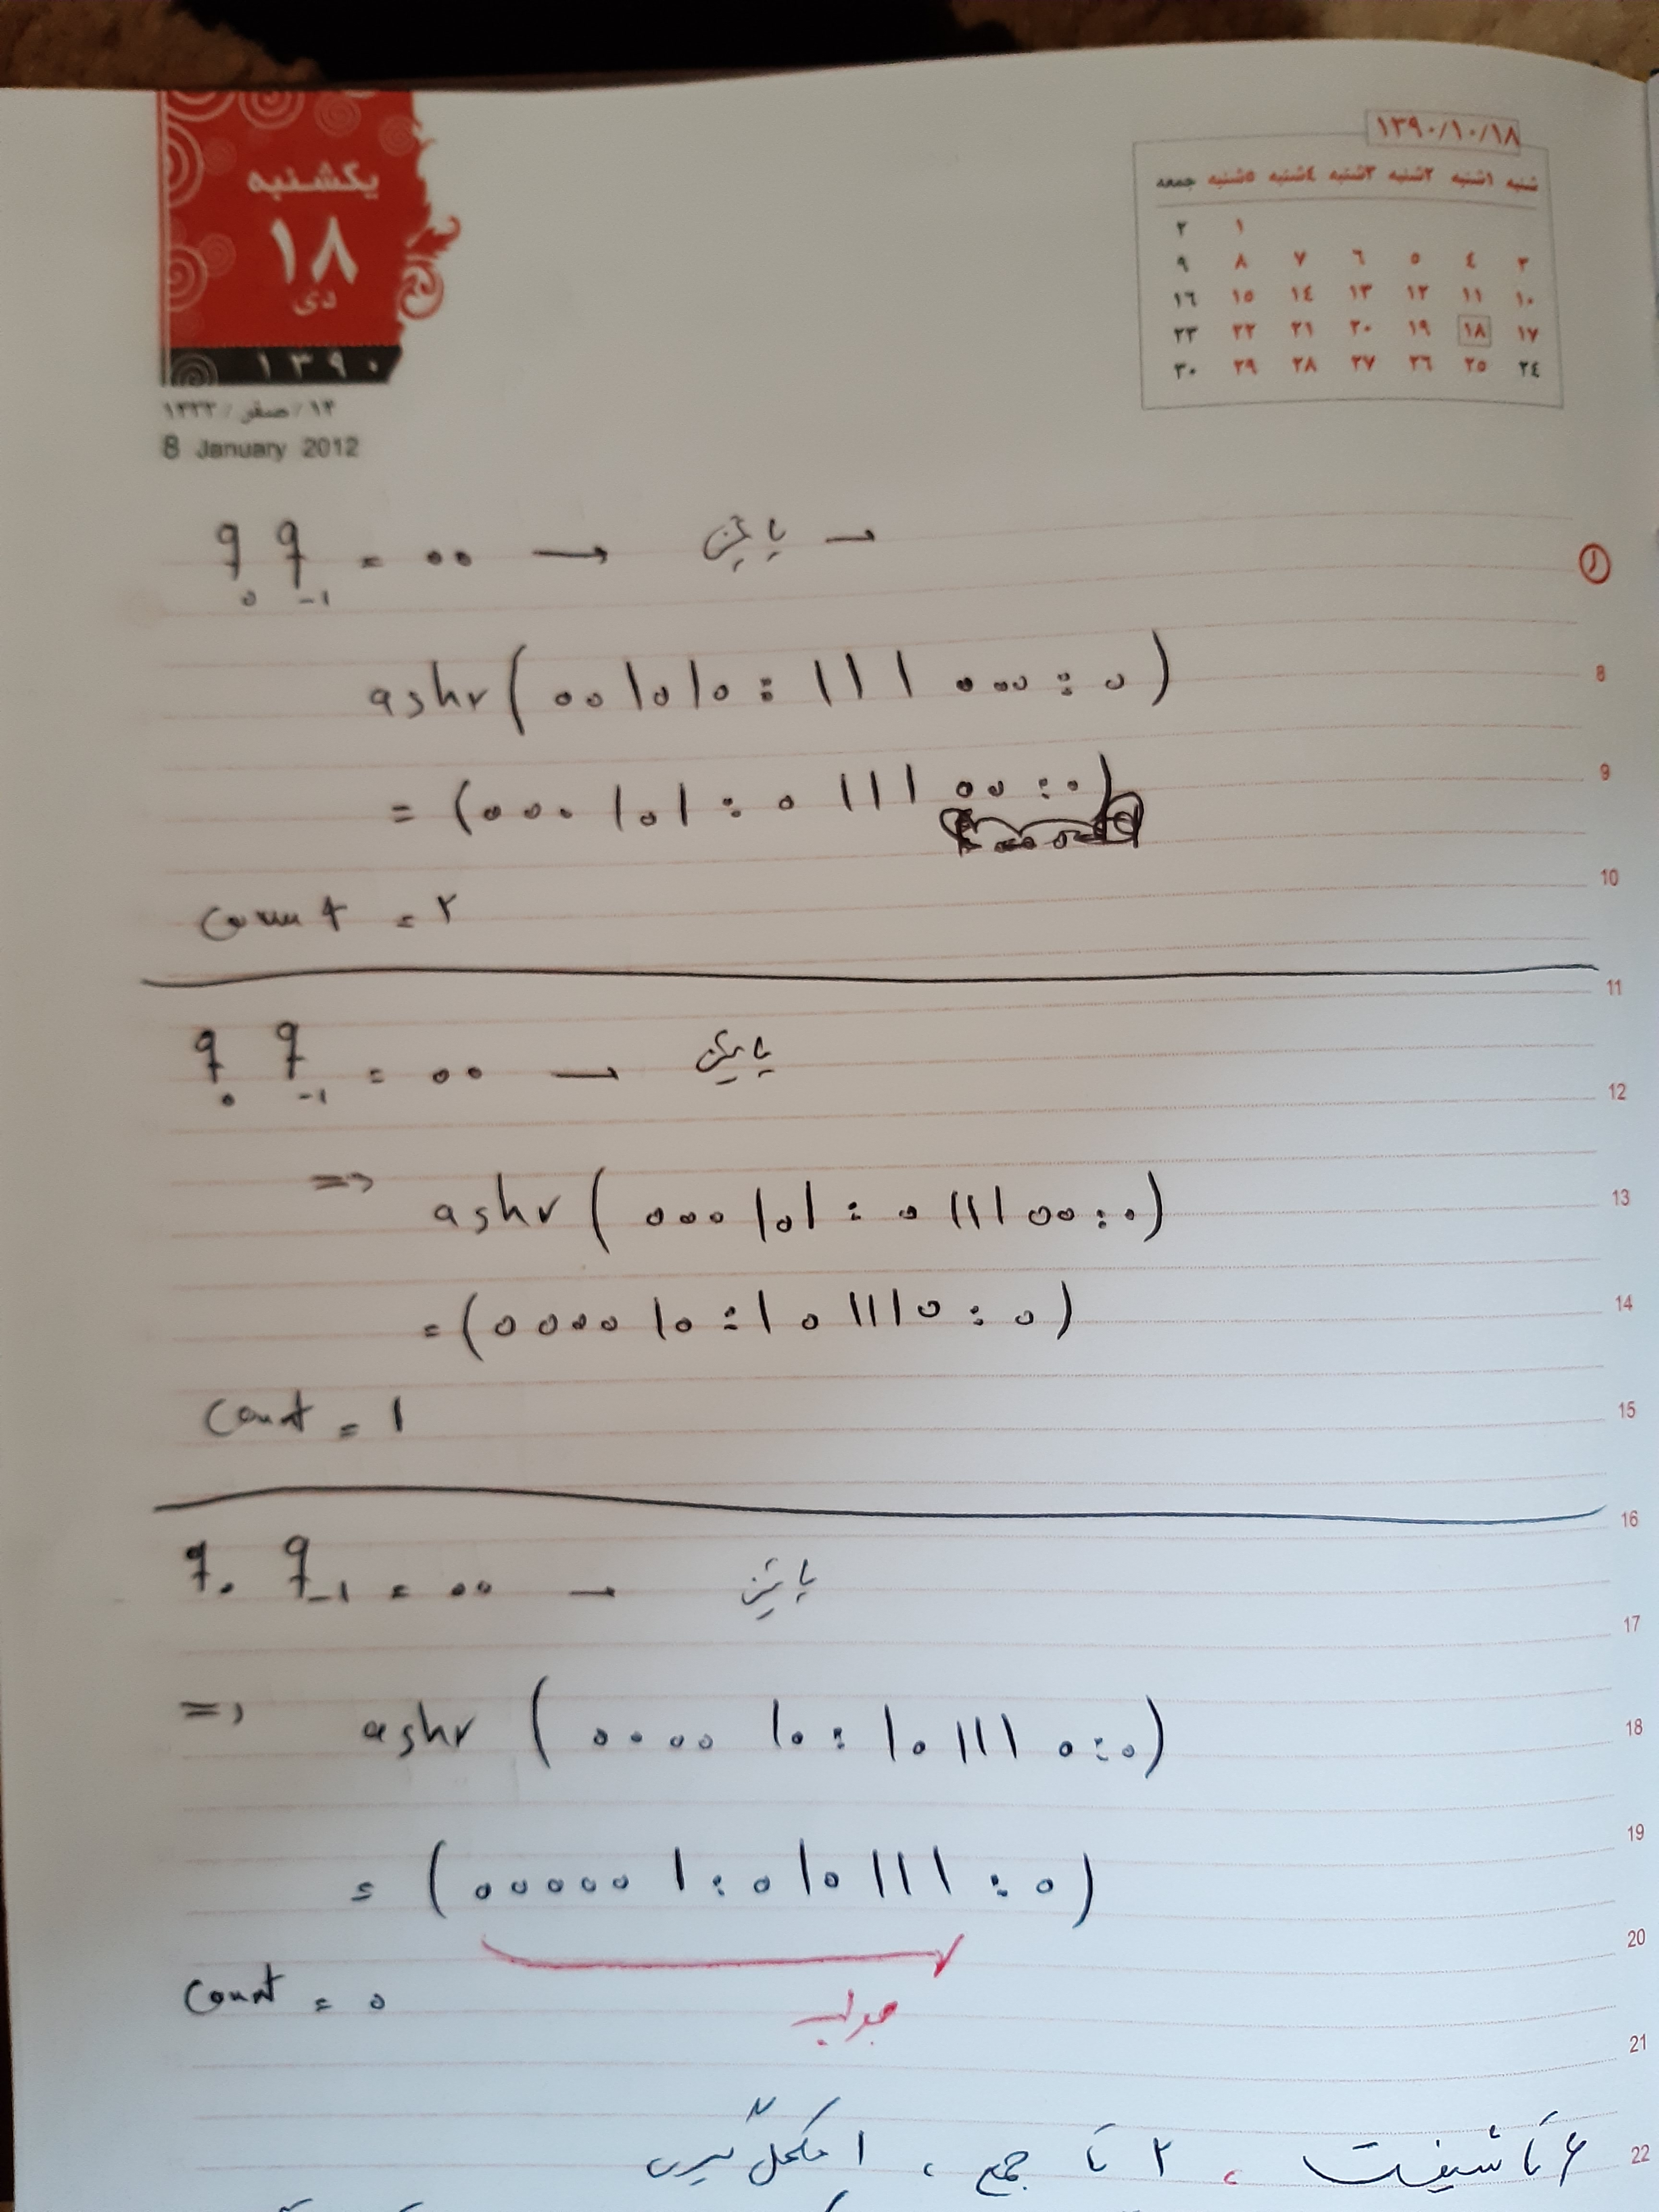 یکشنبه
۱۸
دی
۱۳۹۰
۱۴/صفر/۱۴۳۳
8 January 2012
۱۳۹۰/۱۰/۱۸
شنبه ۱شنبه ۲شنبه ۳شنبه ٤شنبه ۵شنبه جمعه
۱ ۲
۳ ٤ ۵ ٦ ۷ ۸ ۹
۱۰ ۱۱ ۱۲ ۱۳ ۱٤ ۱۵ ۱٦
۱۷ ۱۸ ۱۹ ۲۰ ۲۱ ۲۲ ۲۳
۲٤ ۲۵ ۲٦ ۲۷ ۲۸ ۲۹ ۳۰
q₀ q₋₁ = 00 → پایین →
8
ashr(001010:111000:0)
9
= (000101:011100:0)
10
count = ۲
11
q₀ q₋₁ = 00 → پایین
12
13
=> ashr(000101:011100:0)
14
= (000010:101110:0)
15
count = 1
16
q₀ q₋₁ = 00 → پایین
17
18
=> ashr (000010:101110:0)
19
= (000001:010111:0)
20
count = 0
جواب
21
۶ تا شیفت ، ۲ تا جمع ، ۱ مکمل گیری
22